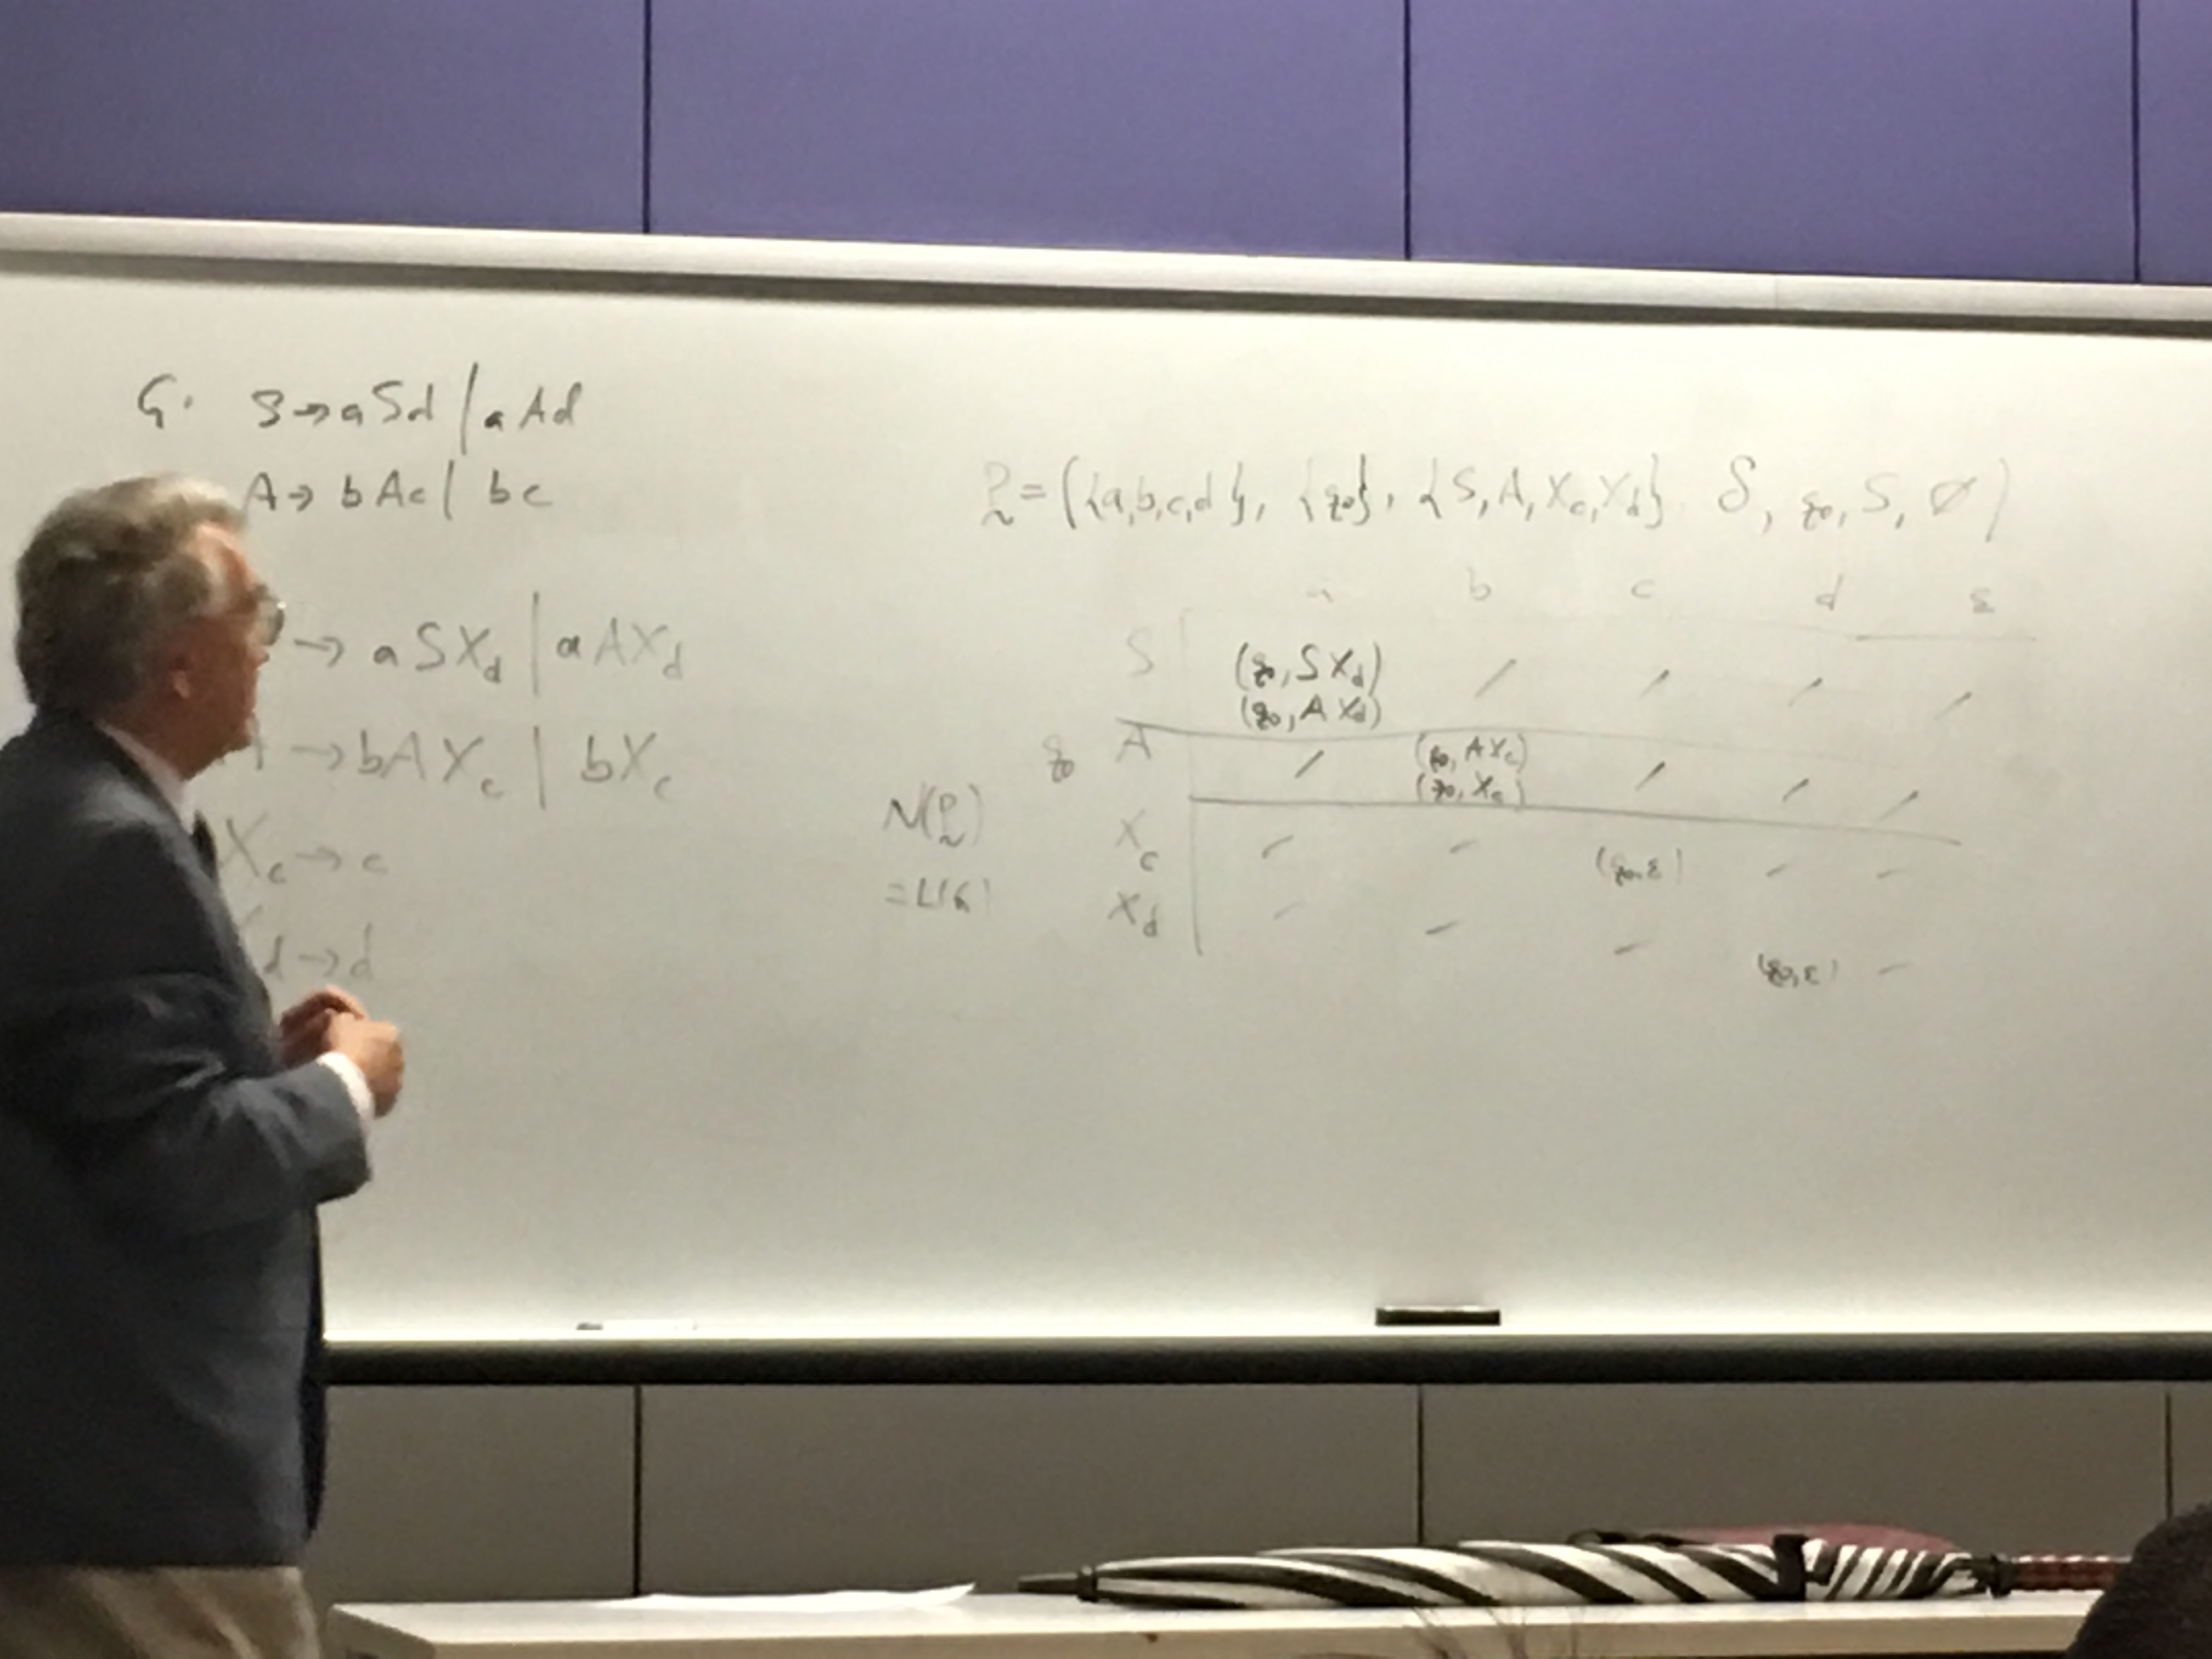 G. S → aSd | aAd
A → bAc | bc
→ aSX_d | aAX_d
→ bAX_c | bX_c
X_c → c
d → d
P = ({a,b,c,d}, {q₀}, {S, A, X_c, X_d}, δ, q₀, S, ∅)
a b c d ε
S (q₀, S X_d) / / / /
(q₀, A X_d)
q₀ A / (q₀, A X_c) / / /
(q₀, X_c)
N(P)
= L(G)
X_c – – (q₀, ε) – –
X_d – – – (q₀, ε) –